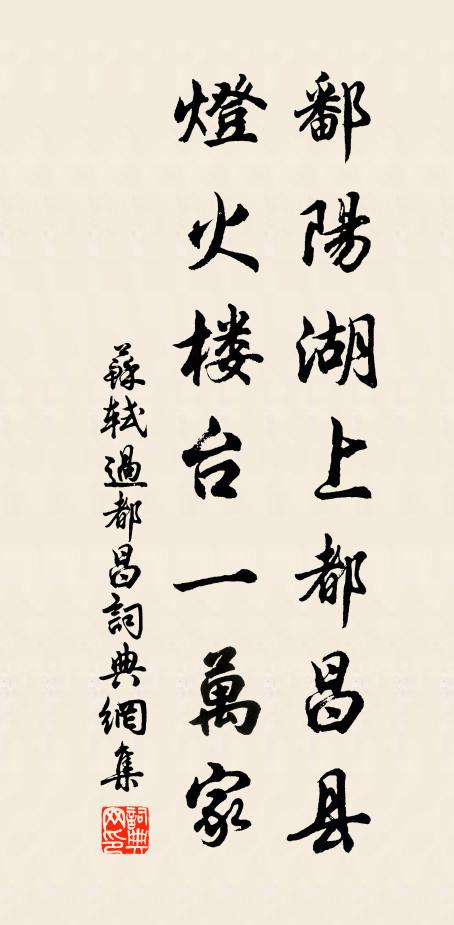 鄱陽湖上都昌县
燈火楼台一萬家
蘇軾過都昌詞典網集
詞典網印